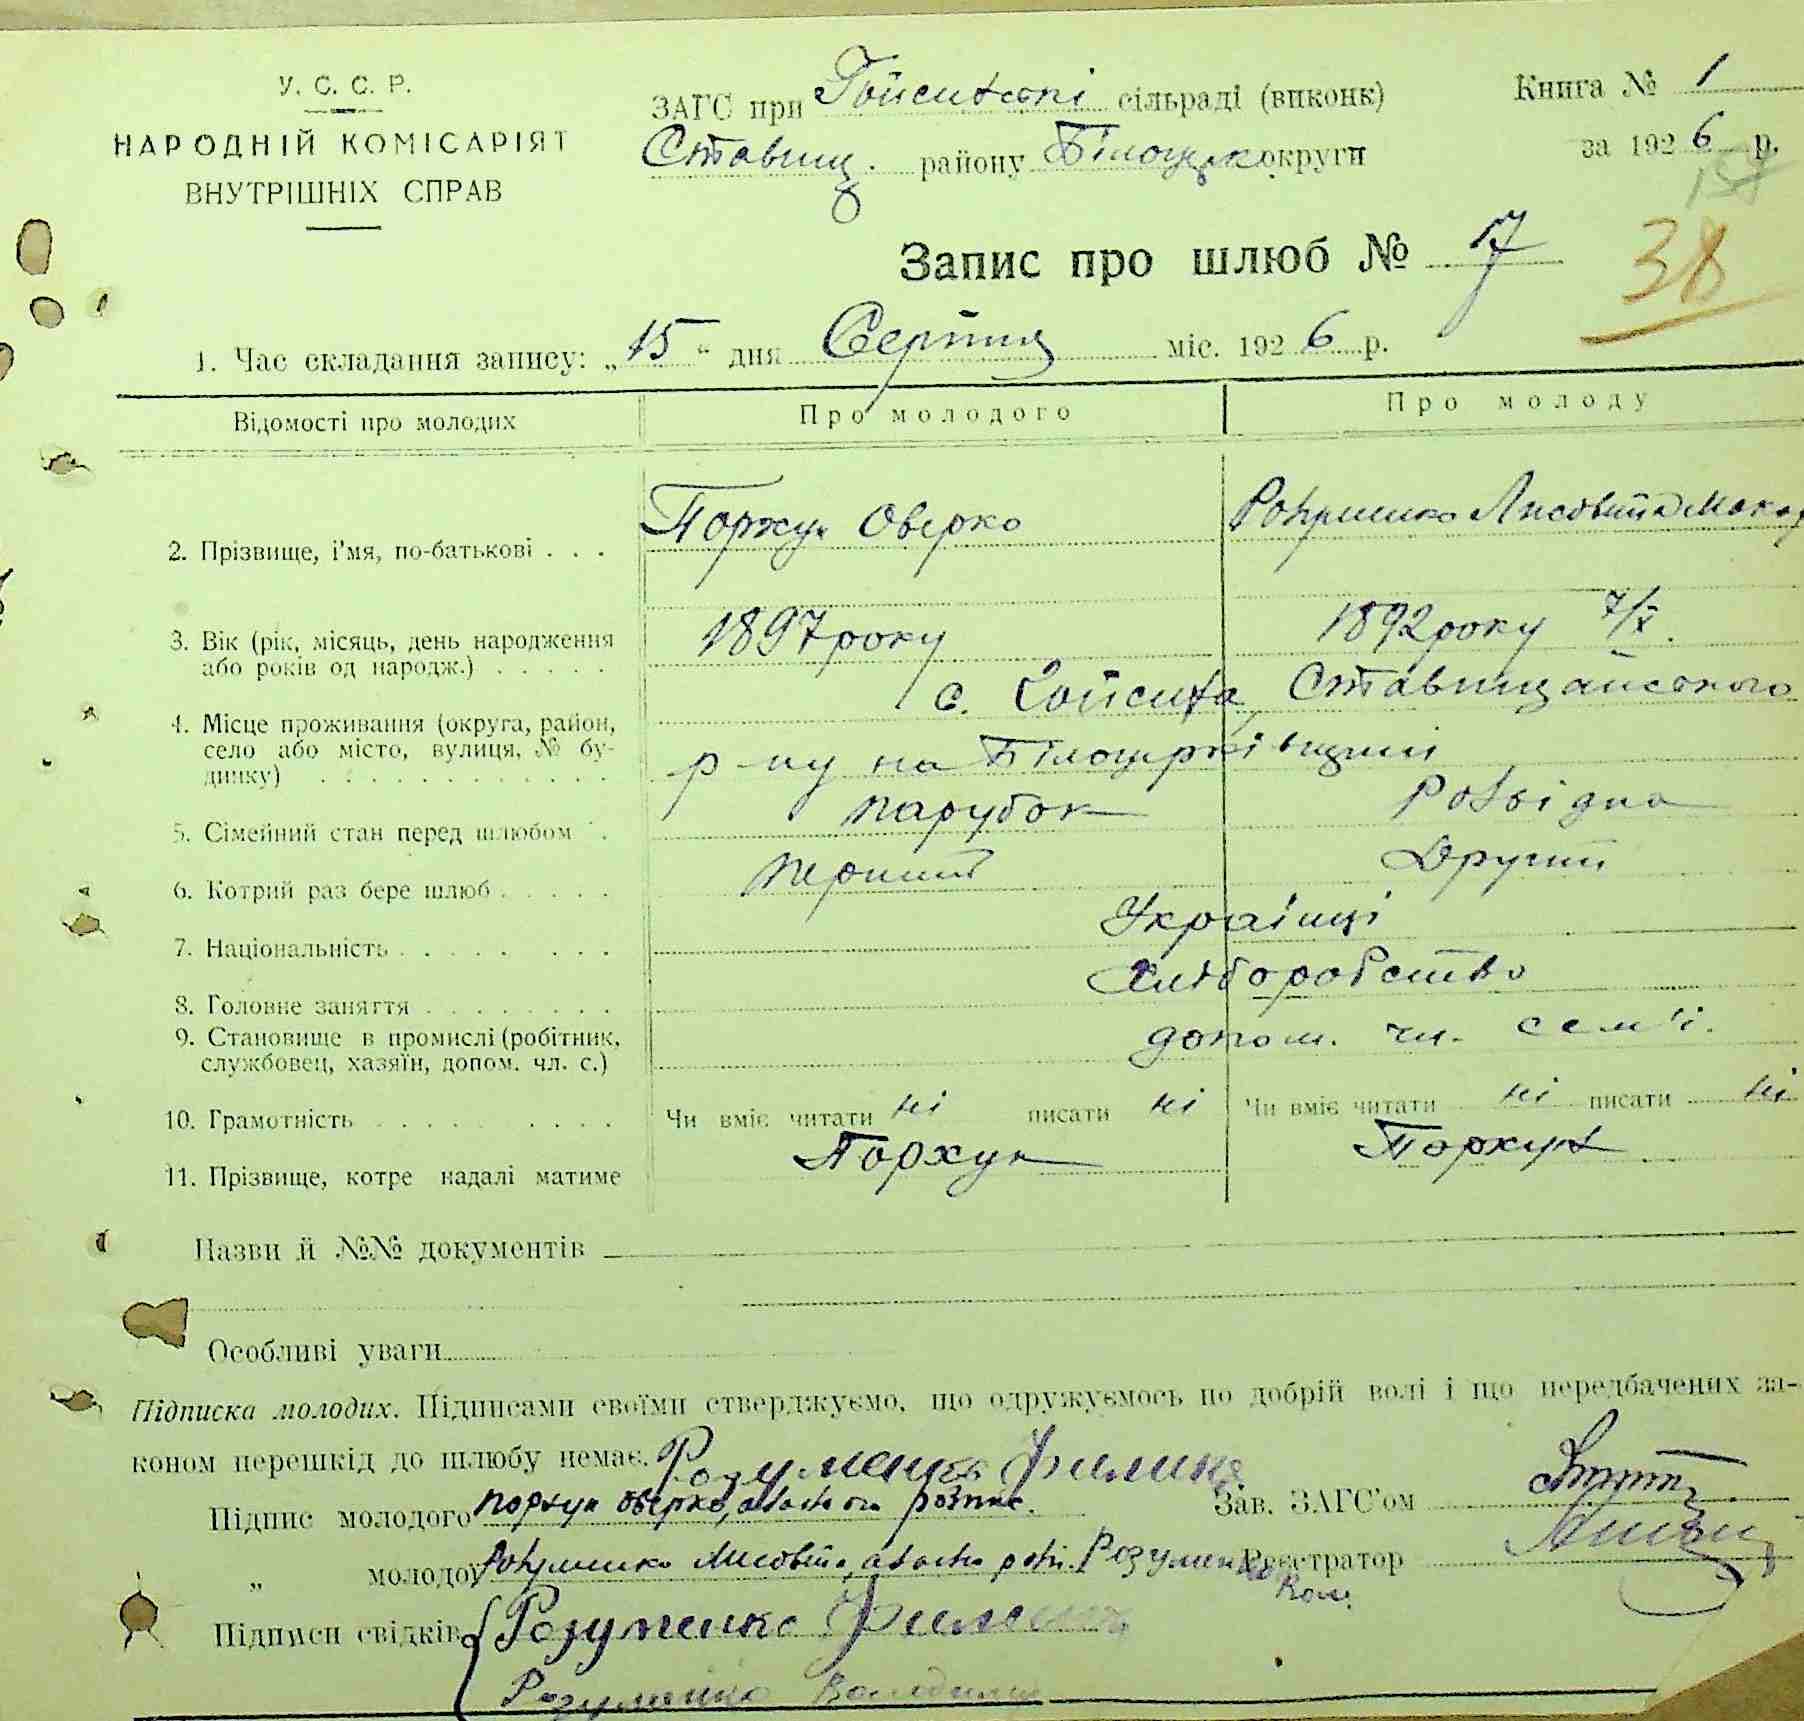 У. С. С. Р.
НАРОДНІЙ КОМІСАРІЯТ
ВНУТРІШНІХ СПРАВ
ЗАГС при Гойсинській сільраді (виконк)
Ставищ. району Білоцерк. округи
Книга № 1
за 1926 р.
Запис про шлюб № 17
38
1. Час складання запису: „15“ дня Серпня міс. 1926 р.
Відомості про молодих Про молодого Про молоду
2. Прізвище, і'мя, по-батькові . . . Порхун Оверко Розуменко Лисовита Мокар
3. Вік (рік, місяць, день народження 1897 року 1892 року 7/X.
або років од народж.) . . . . .
4. Місце проживання (округа, район, с. Гойсиха Ставищанського
село або місто, вулиця, № бу-
динку) р-ну на Білоцерківщині
5. Сімейний стан перед шлюбом парубок розвідна
6. Котрий раз бере шлюб перший Другий
7. Національність Українці
8. Головне заняття Хліборобство
9. Становище в промислі (робітник, допом. чл. сем'ї.
службовец, хазяїн, допом. чл. с.)
10. Грамотність Чи вміє читати ні писати ні Чи вміє читати ні писати ні
11. Прізвище, котре надалі матиме Порхун Порхун
Назви й №№ документів
Особливі уваги
Підписка молодих. Підписами своїми стверджуємо, що одружуємось по добрій волі і що передбачених за-
коном перешкід до шлюбу немає. Розуменко Филимон
Підпис молодого порхун оверко, Зав. ЗАГС'ом
„ молодої Розуменко Розуменко Реєстратор
Вол.
Підписи свідків Розуменко Филимон
Розуменко Володимир